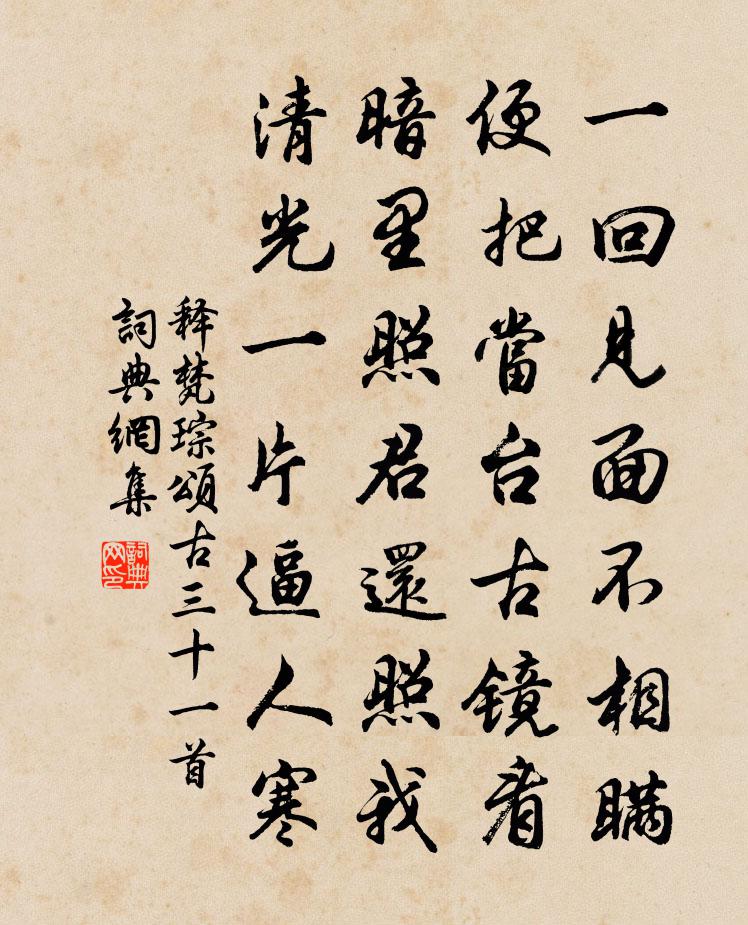 一回見面不相瞞
便把當台古鏡看
暗里照君還照我
清光一片逼人寒
释梵琮頌古三十一首
詞典網集
詞典网印